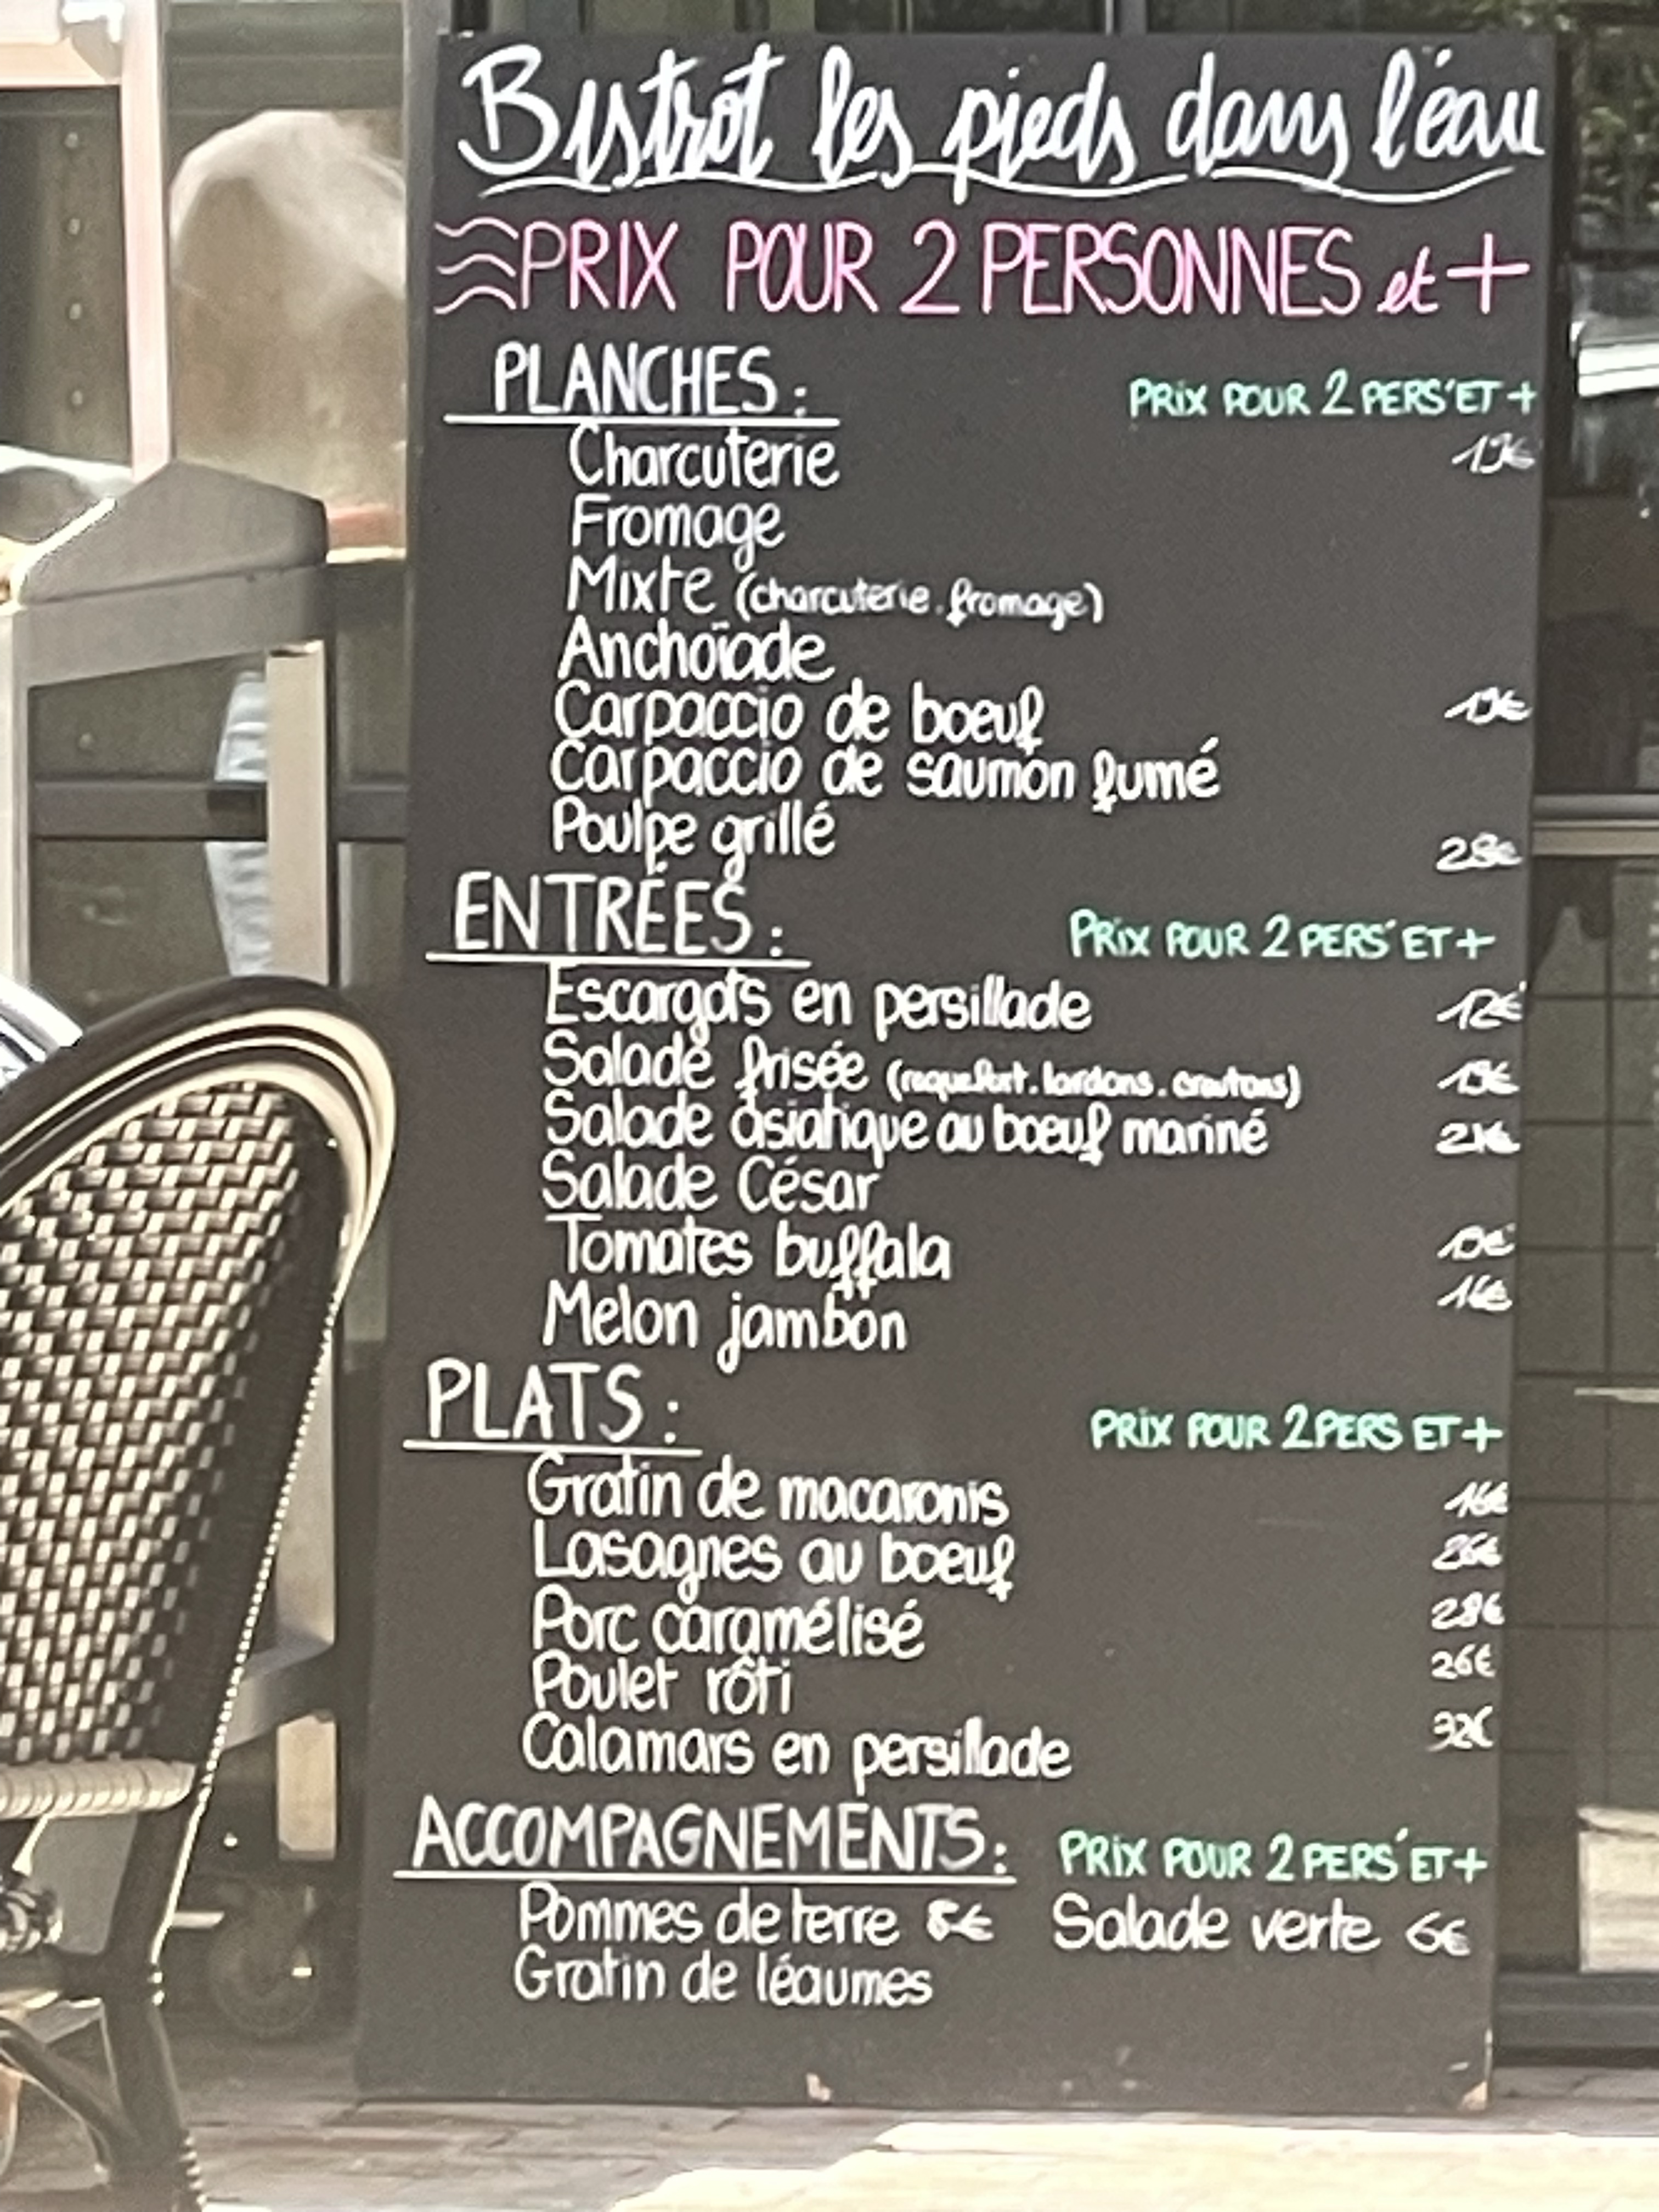 Bistrot les pieds dans l'eau
PRIX POUR 2 PERSONNES et +
PLANCHES : PRIX POUR 2 PERS' ET +
Charcuterie
Fromage
Mixte (charcuterie. fromage)
Anchoïade
Carpaccio de boeuf
Carpaccio de saumon fumé
Poulpe grillé
ENTRÉES : PRIX POUR 2 PERS' ET +
Escargots en persillade 12€
Salade frisée (roquefort. lardons. croutons)
Salade asiatique au boeuf mariné 21€
Salade César
Tomates buffala
Melon jambon 16€
PLATS : PRIX POUR 2 PERS ET +
Gratin de macaronis 16€
Lasagnes au boeuf 26€
Porc caramélisé 28€
Poulet rôti 26€
Calamars en persillade 32€
ACCOMPAGNEMENTS : PRIX POUR 2 PERS' ET +
Pommes de terre Salade verte 6€
Gratin de légumes